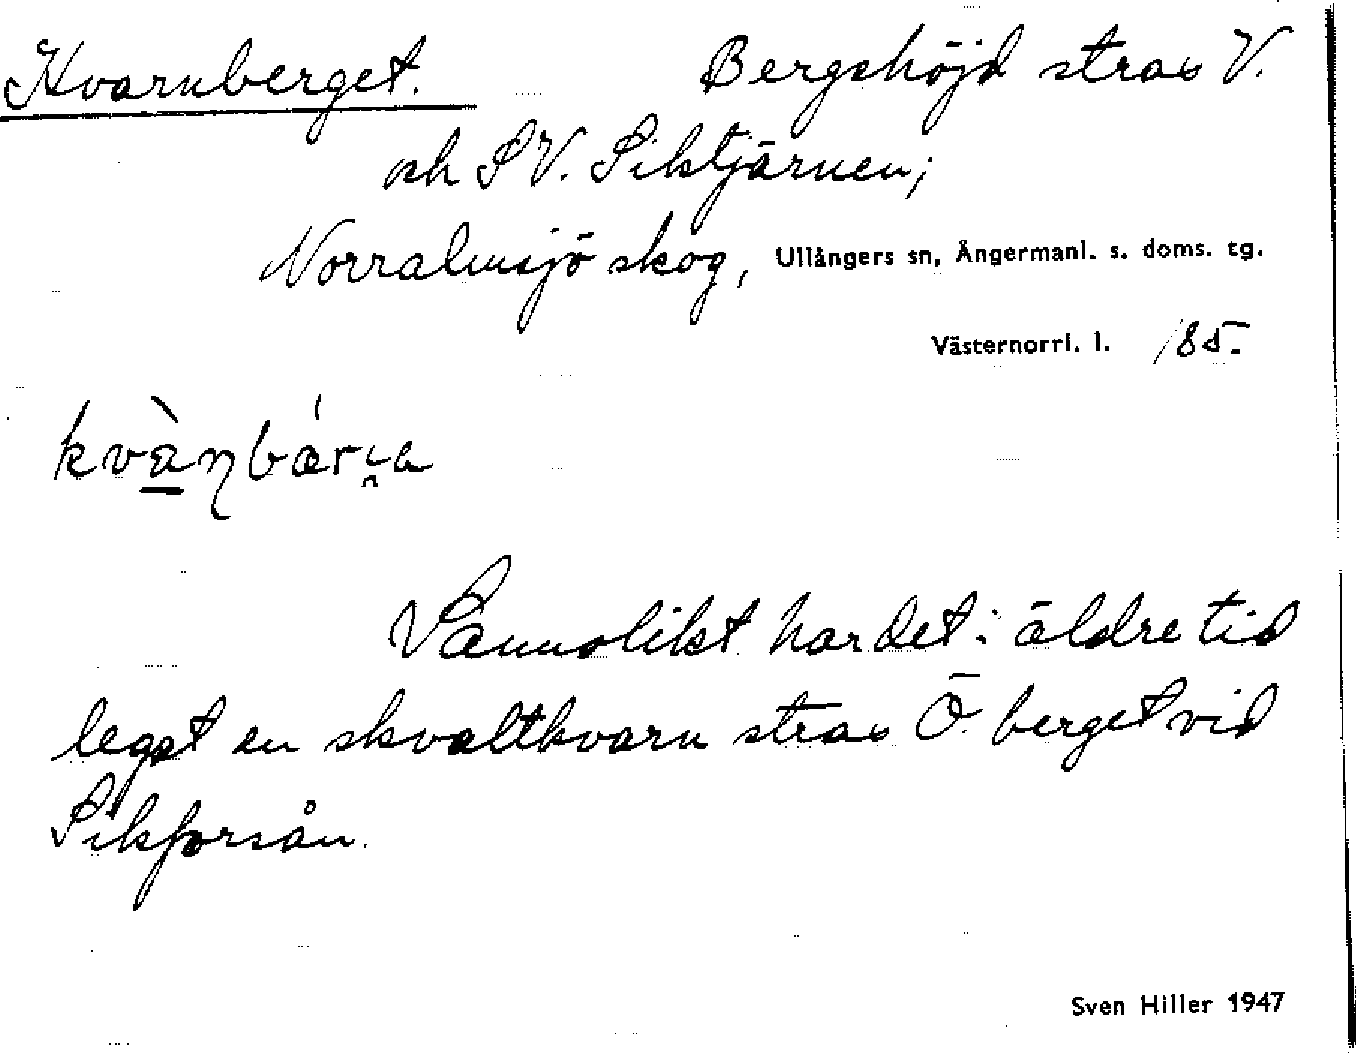 Kvarnberget. Bergshöjd strax V.
och SV. Siktjärnen;
Norralmsjö skog, Ullångers sn, Ångermanl. s. doms. tg.
Västernorrl. l. 185.
Sannolikt har det i äldre tid
legat en skvaltkvarn strax Ö. berget vid
Sikforsån.
Sven Hiller 1947